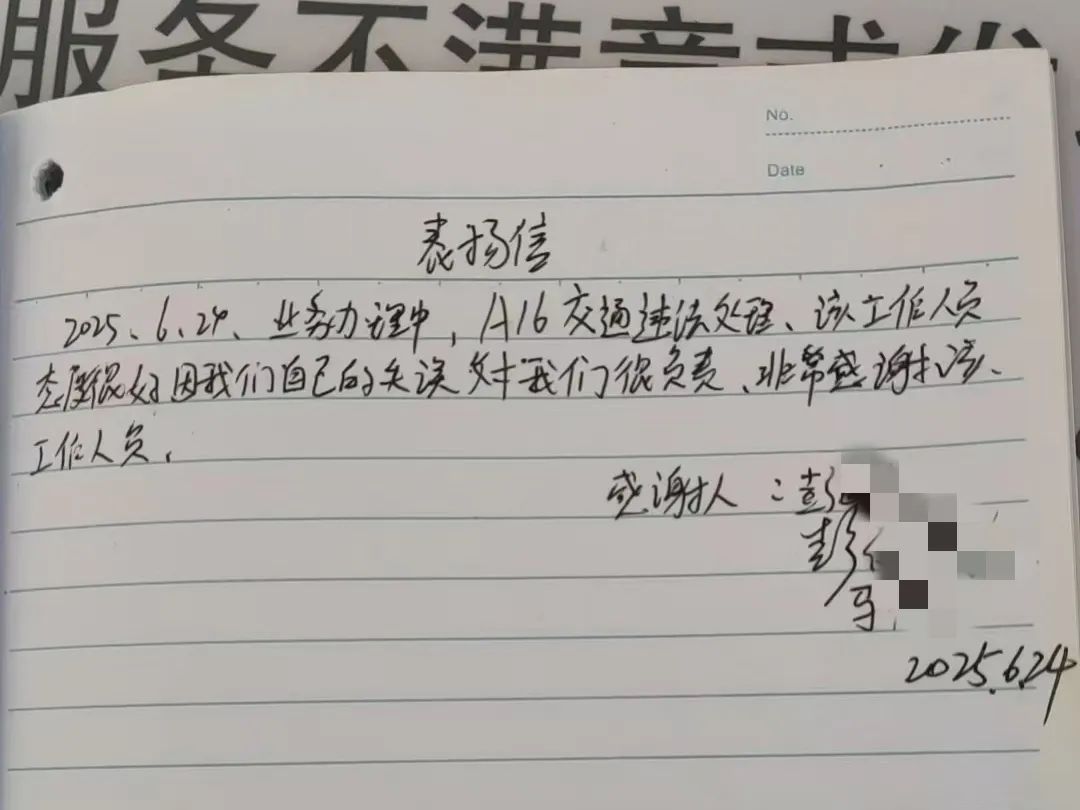 服务不满意或你
No.
Date
表扬信
2025、6、24、业务办理中，A16交通违法处理、该工作人员
态度很好因我们自己的失误 对我们很负责、非常感谢该、
工作人员，
感谢人：彭
彭
马
2025.6.24